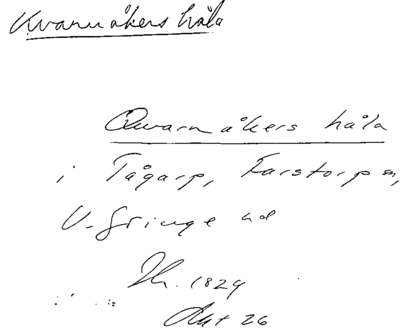 Kvarnåkers håla
Qwarnåkers håla
i Tågarp, Farstorp sn,
V. Göinge hd
1829
Akt 26